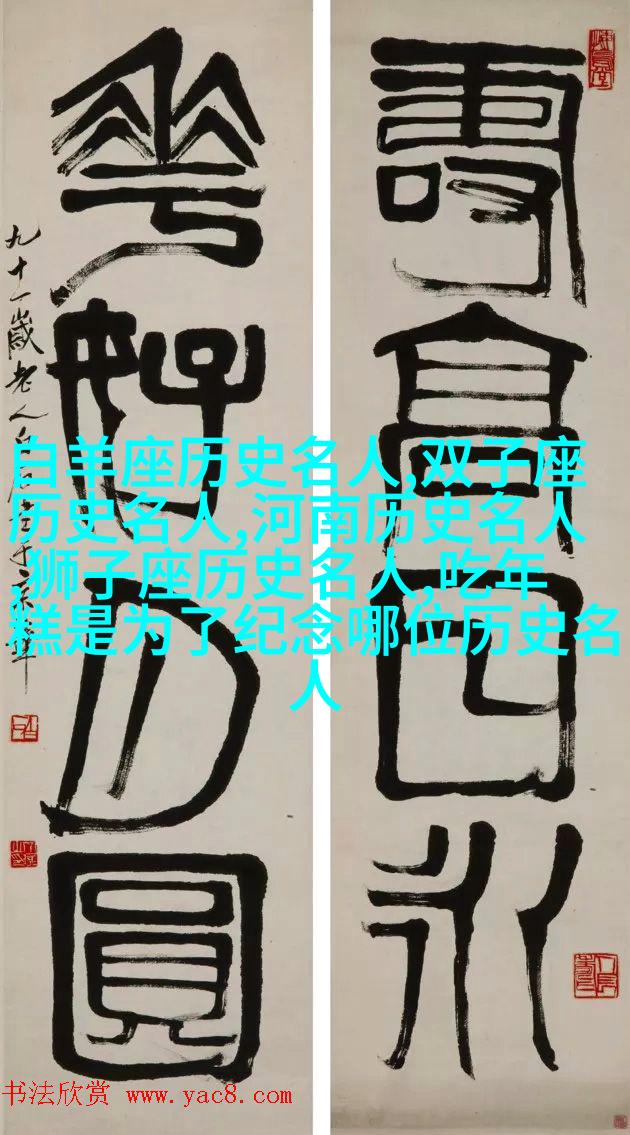 壽高日永
華好月圓
九十一歲老人白石
白羊座历史名人,双子座
历史名人,河南历史名人
,狮子座历史名人,吃年
糕是为了纪念哪位历史名
人
书法欣赏 www.yac8.com